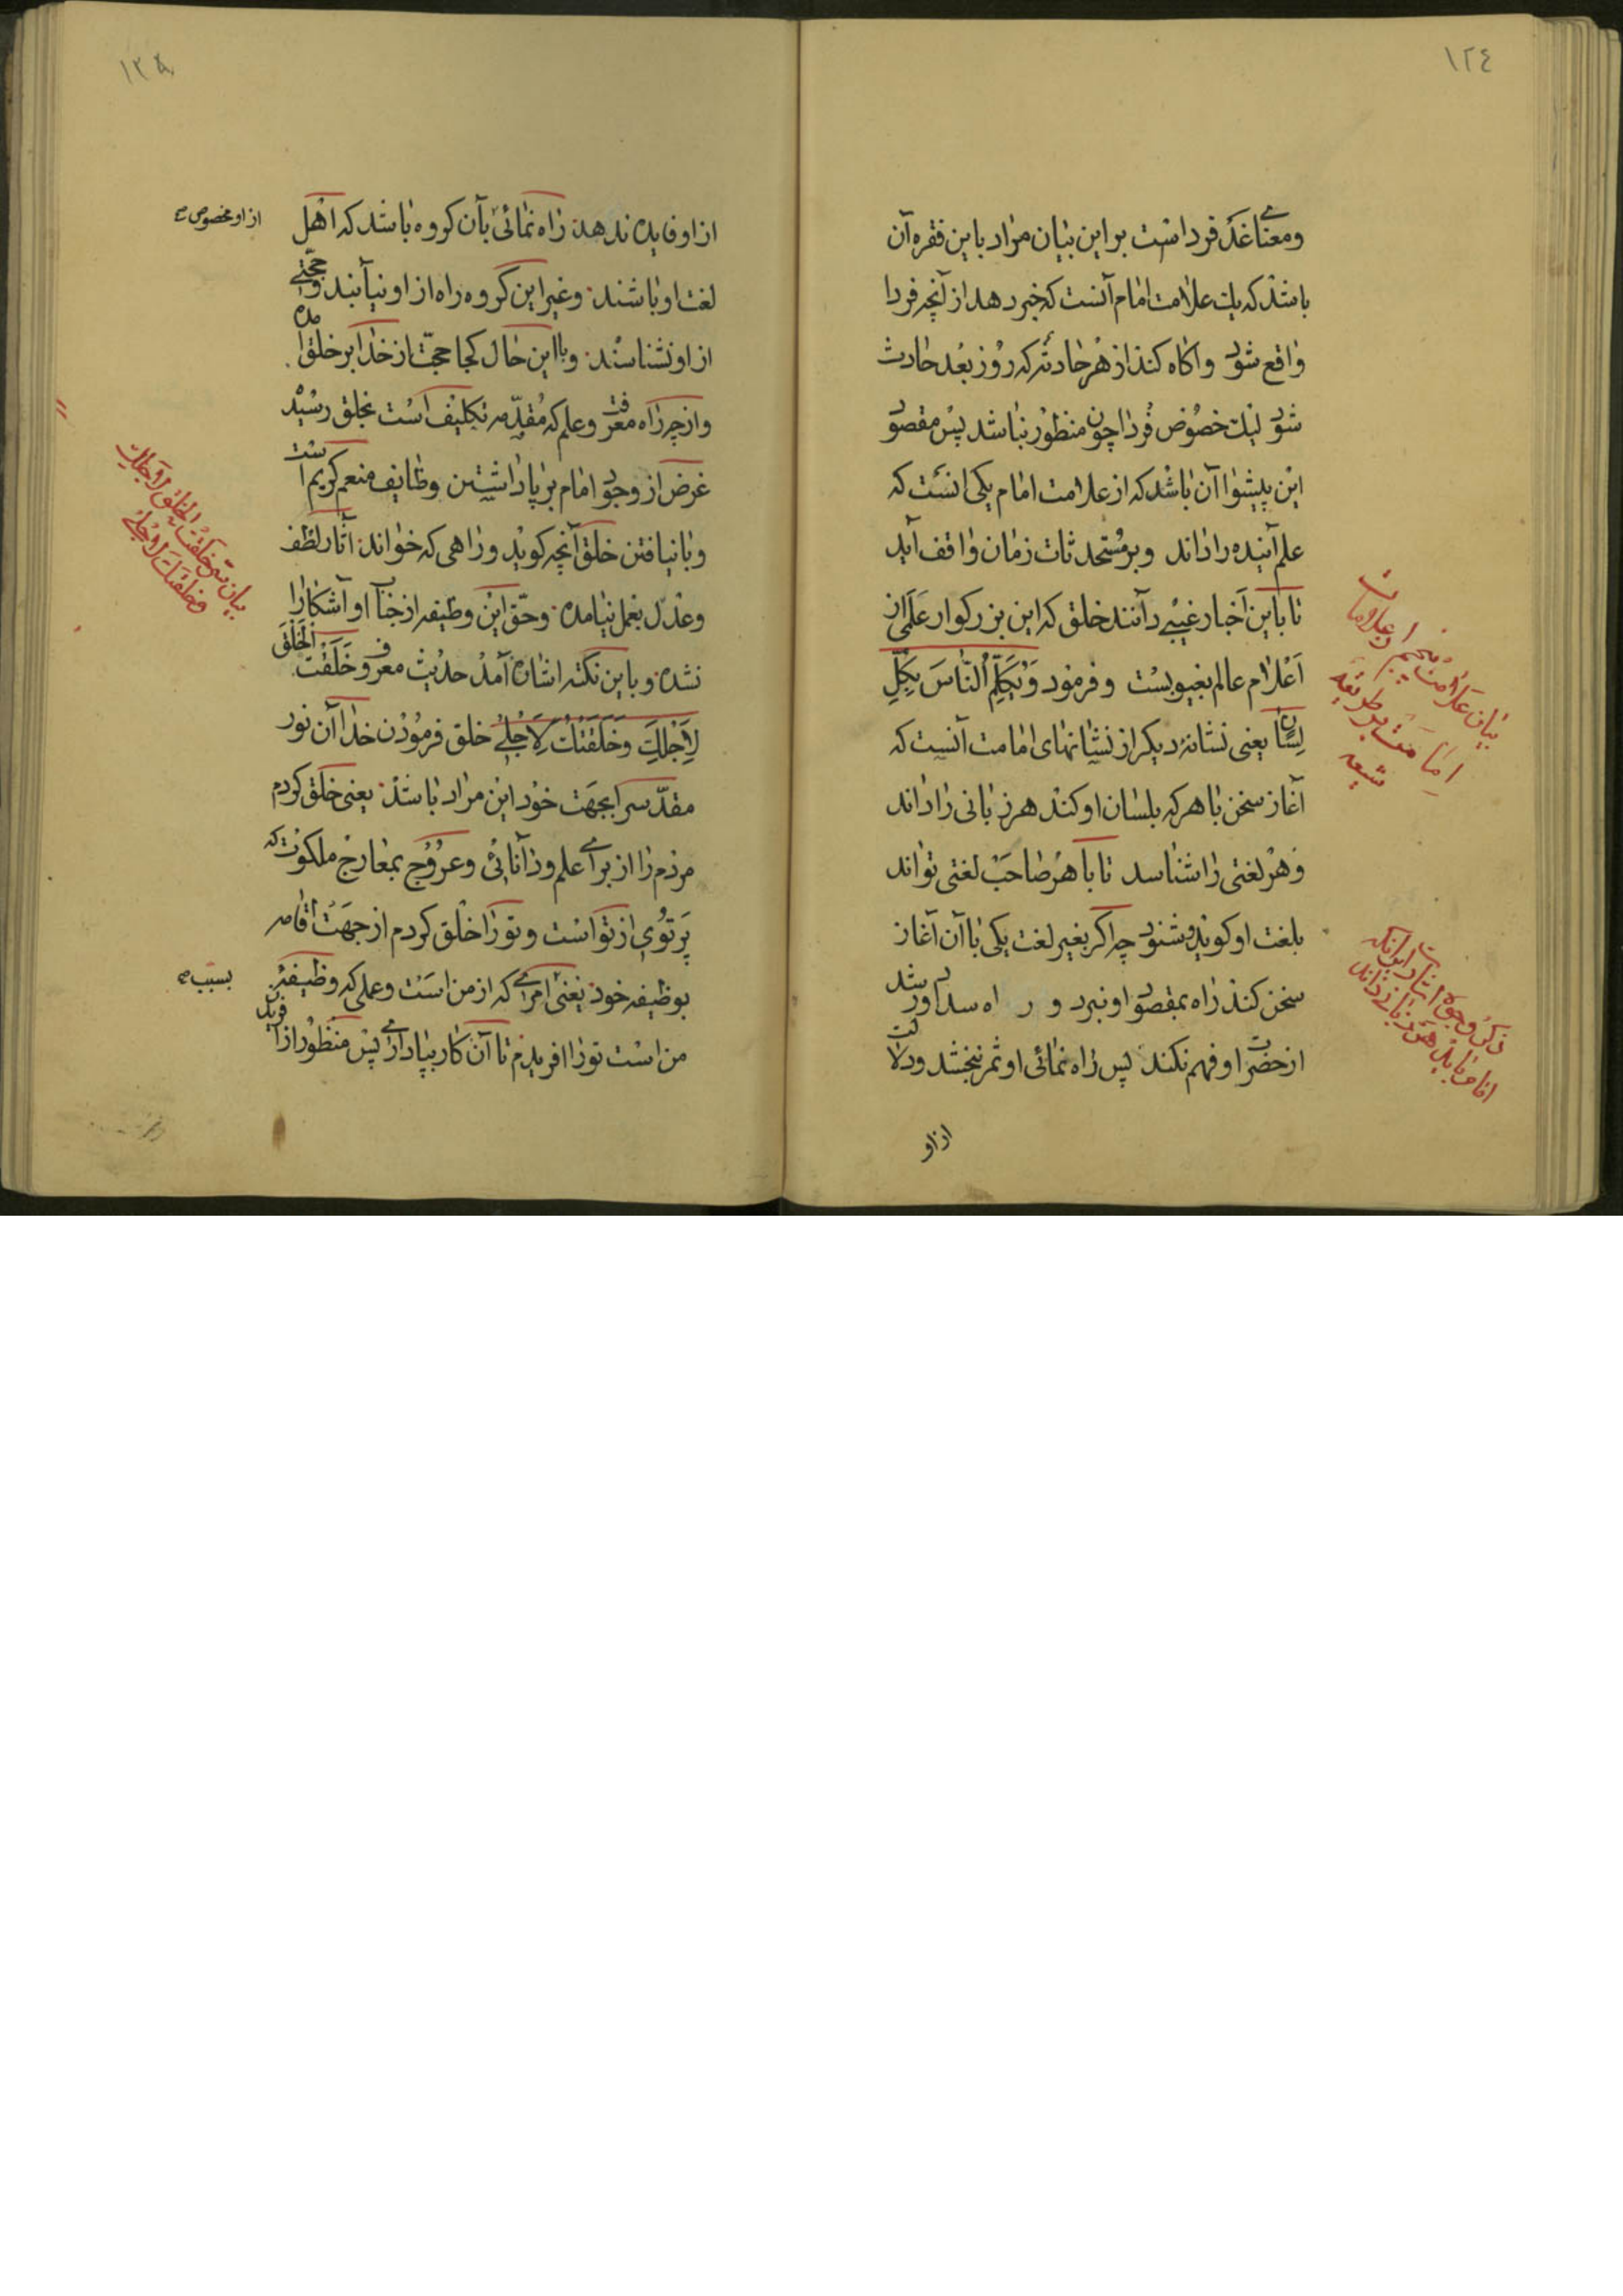 ١٢٤
ومعنای غد فرداست بر این بیان مراد باین فقره آن
باشد که یک علامت امام آنست که خبر دهد از آنچه فردا
واقع شود واکاه کند از هر حادثه که روز بعد حادث
شود لیک خصوص فردا چون منظور نباشد پس مقصود
این پیشوا آن باشد که از علامت امام یکی انست که
علم آینده را داند وبر مستحدثات زمان واقف آید
تا باین اخبار غیبی دانند خلق که این بزرکوار علمی از
اعلام عالم بغیوبست وفرمود وَیُکَلِّمُ النّاسَ بِکُلِّ
لِسانٍ یعنی نشانه دیکر از نشانهای امامت آنست که
آغاز سخن با هر که بلسان او کند هر زبانی را داند
وهر لغتی را شناسد تا با هر صاحب لغتی تواند
بلغت او کوید وشنود چرا که اگر بغیر لغت یکی با آن آغاز
سخن کند راه بمقصود او نبرد و
از حضرت او فهم نکند پس راه نمائی او ثمر نبخشد ودلالت
از او
بیان علامت پنجم از علامات
امامت بر طریقه
شیعه
ذکر وجوه اثبات اینکه
امام باید هر زبانی داند
١٢٥
از او فایده ندهد راه نمائی بآن کروه باشد که اهل
از او مخصوص
لغت او باشند وغیر این کروه راه از او نیابند وحجتی
از او نشناسند وبا این حال کجا حجت از خدا بر خلق آمده
واز چه راه معرفت وعلم که مقدمه تکلیف است بخلق رسید
غرض از وجود امام برپا داشتن وظایف منعم کریم است
وبا نیافتن خلق آنچه کوید وراهی که خواند آثار لطف
وعدل بعمل نیامده وحق این وظیفه از جناب او آشکارا
نشده وباین نکته اشاره آمد حدیث معروف خَلَقْتُ الْخَلْقَ
لِاَجْلِکَ وَخَلَقْتُکَ لِاَجْلی خلق فرمودن خدا آن نور
مقدس را بجهت خود این مراد باشد یعنی خلق کردم
مردم را از برای علم ودانائی وعروج بمعارج ملکوت که
پرتوی از تو است وتو را خلق کردم از جهت اقامه
بوظیفه خود یعنی امری که از من است وعملی که وظیفه
بسبب
من است تو را افریدم تا آن کار بپا داری پس منظور از آفرید
بیان سر خلقت الخلق لاجلک
وخلقتک لاجلی